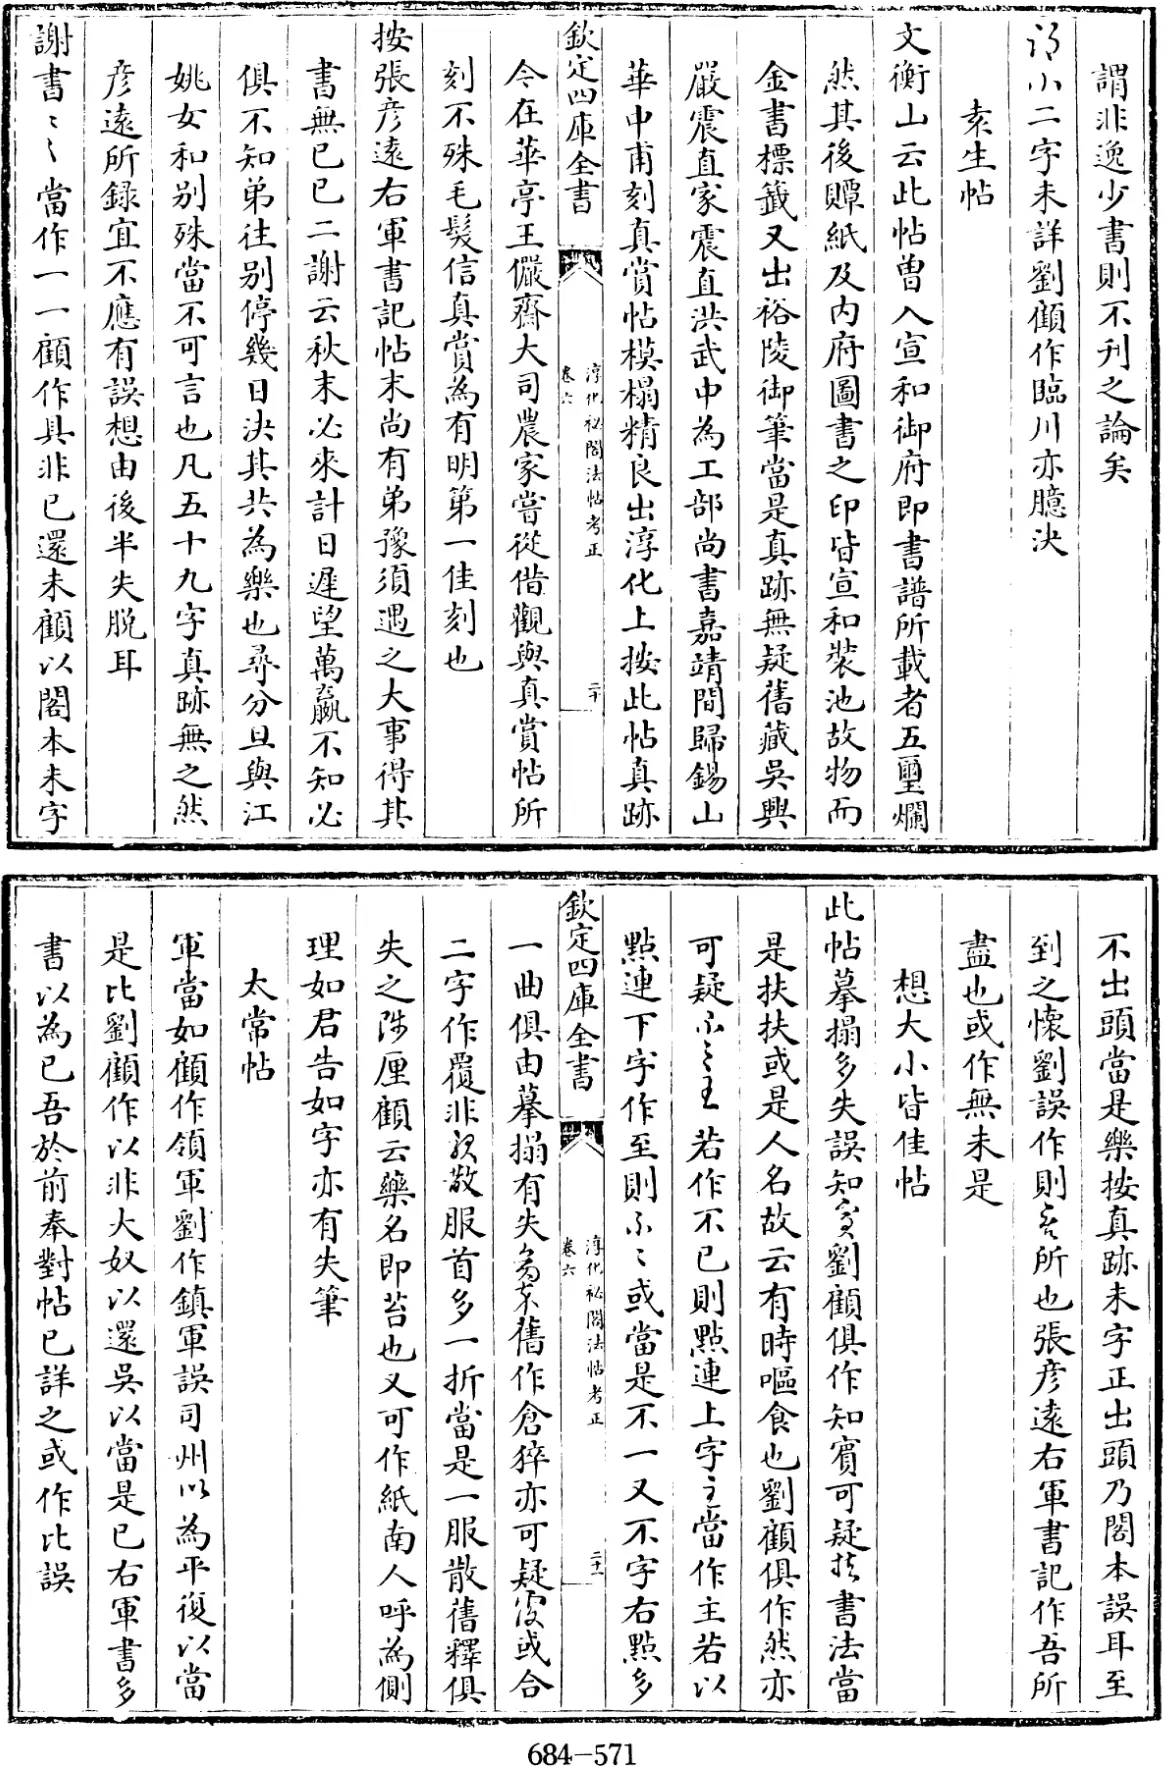 謂非逸少書則不刋之論矣
小二字未詳劉顧作臨川亦臆決
袁生帖
文衡山云此帖曽入宣和御府即書譜所載者五璽爛
然其後贉紙及內府圖書之印皆宣和裝池故物而
金書標籖又出裕陵御筆當是真跡無疑舊藏吳興
嚴震直家震直洪武中為工部尚書嘉靖間歸錫山
華中甫刻真賞帖模榻精良出淳化上按此帖真跡
欽定四庫全書
淳化祕閣法帖考正
卷六
二十
今在華亭王儼齋大司農家嘗從借觀與真賞帖所
刻不殊毛髮信真賞為有明第一佳刻也
按張彦遠右軍書記帖末尚有弟豫須遇之大事得其
書無已已二謝云秋末必來計日遲望萬羸不知必
俱不知弟往别停幾日決其共為樂也尋分旦與江
姚女和别殊當不可言也凡五十九字真跡無之然
彦遠所録宜不應有誤想由後半失脫耳
謝書當作一一顧作具非已還未顧以閣本未字
不出頭當是樂按真跡未字正出頭乃閣本誤耳至
到之懷劉誤作則所也張彦遠右軍書記作吾所
盡也或作無未是
想大小皆佳帖
此帖摹搨多失誤知劉顧俱作知賓可疑書法當
是扶扶或是人名故云有時嘔食也劉顧俱作然亦
可疑若作不已則點連上字當作主若以
點連下字作至則或當是不一又不字右點多
欽定四庫全書
淳化祕閣法帖考正
卷六
二十一
一曲俱由摹搨有失舊作倉猝亦可疑或合
二字作覆非散服首多一折當是一服散舊釋俱
失之厘顧云藥名即苔也又可作紙南人呼為側
理如君告如字亦有失筆
太常帖
軍當如顧作領軍劉作鎮軍誤司州以為平復以當
是比劉顧作以非大奴以還吳以當是已右軍書多
書以為已吾於前奉對帖已詳之或作比誤
684-571